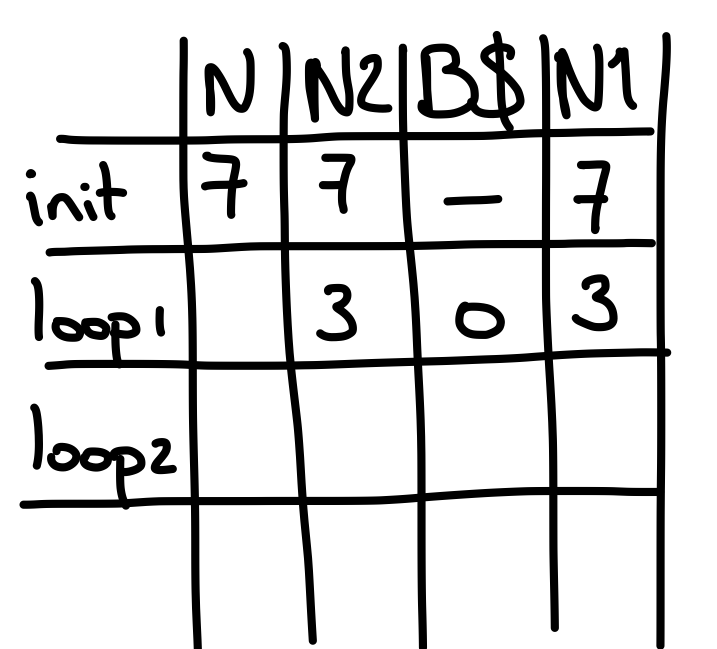 N N2 B$ N1
init 7 7 - 7
loop1 3 0 3
loop2